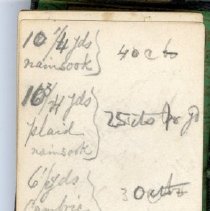 10 1/4 yds
nainsook
40 cts
10 3/4 yds
plaid
nainsook
25 cts pr yd
6 1/2 yds
Cambric
30 cts